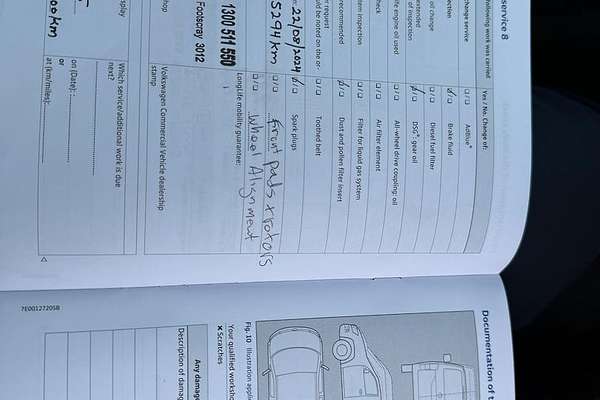 service 8
following work was carried
Yes / No, Change of:
change service
AdBlue®
Brake fluid
oil change
Diesel fuel filter
extended
of inspection
DSG®: gear oil
life engine oil used
All-wheel drive coupling: oil
check
Air filter element
inspection
Filter for liquid gas system
recommended
Dust and pollen filter insert
r request
ould be noted on the or-
Toothed belt
22/08/2024
Spark plugs
5294 km
Front pads & rotors
Wheel Alignment
LongLife mobility guarantee:
1300 511 550
Footscray 3012
hop
Volkswagen Commercial Vehicle dealership
stamp
splay
Which service/additional work is due
next?
on (Date):
or
at (km/miles):
00 km
7E0012720SB
Documentation of t
Fig. 10 Illustration applic
Your qualified worksho
× Scratches
Any damage
Description of damag